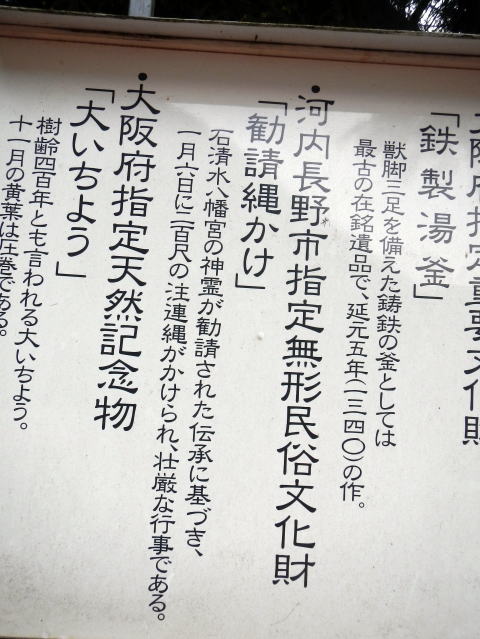 大阪府指定重要文化財
「鉄製湯釜」
獣脚三足を備えた鋳鉄の釜としては
最古の在銘遺品で、延元五年(一三四〇)の作。
・河内長野市指定無形民俗文化財
「勧請縄かけ」
石清水八幡宮の神霊が勧請された伝承に基づき、
一月六日に二百尺の注連縄がかけられ、壮厳な行事である。
・大阪府指定天然記念物
「大いちよう」
樹齢四百年とも言われる大いちよう。
十一月の黄葉は圧巻である。